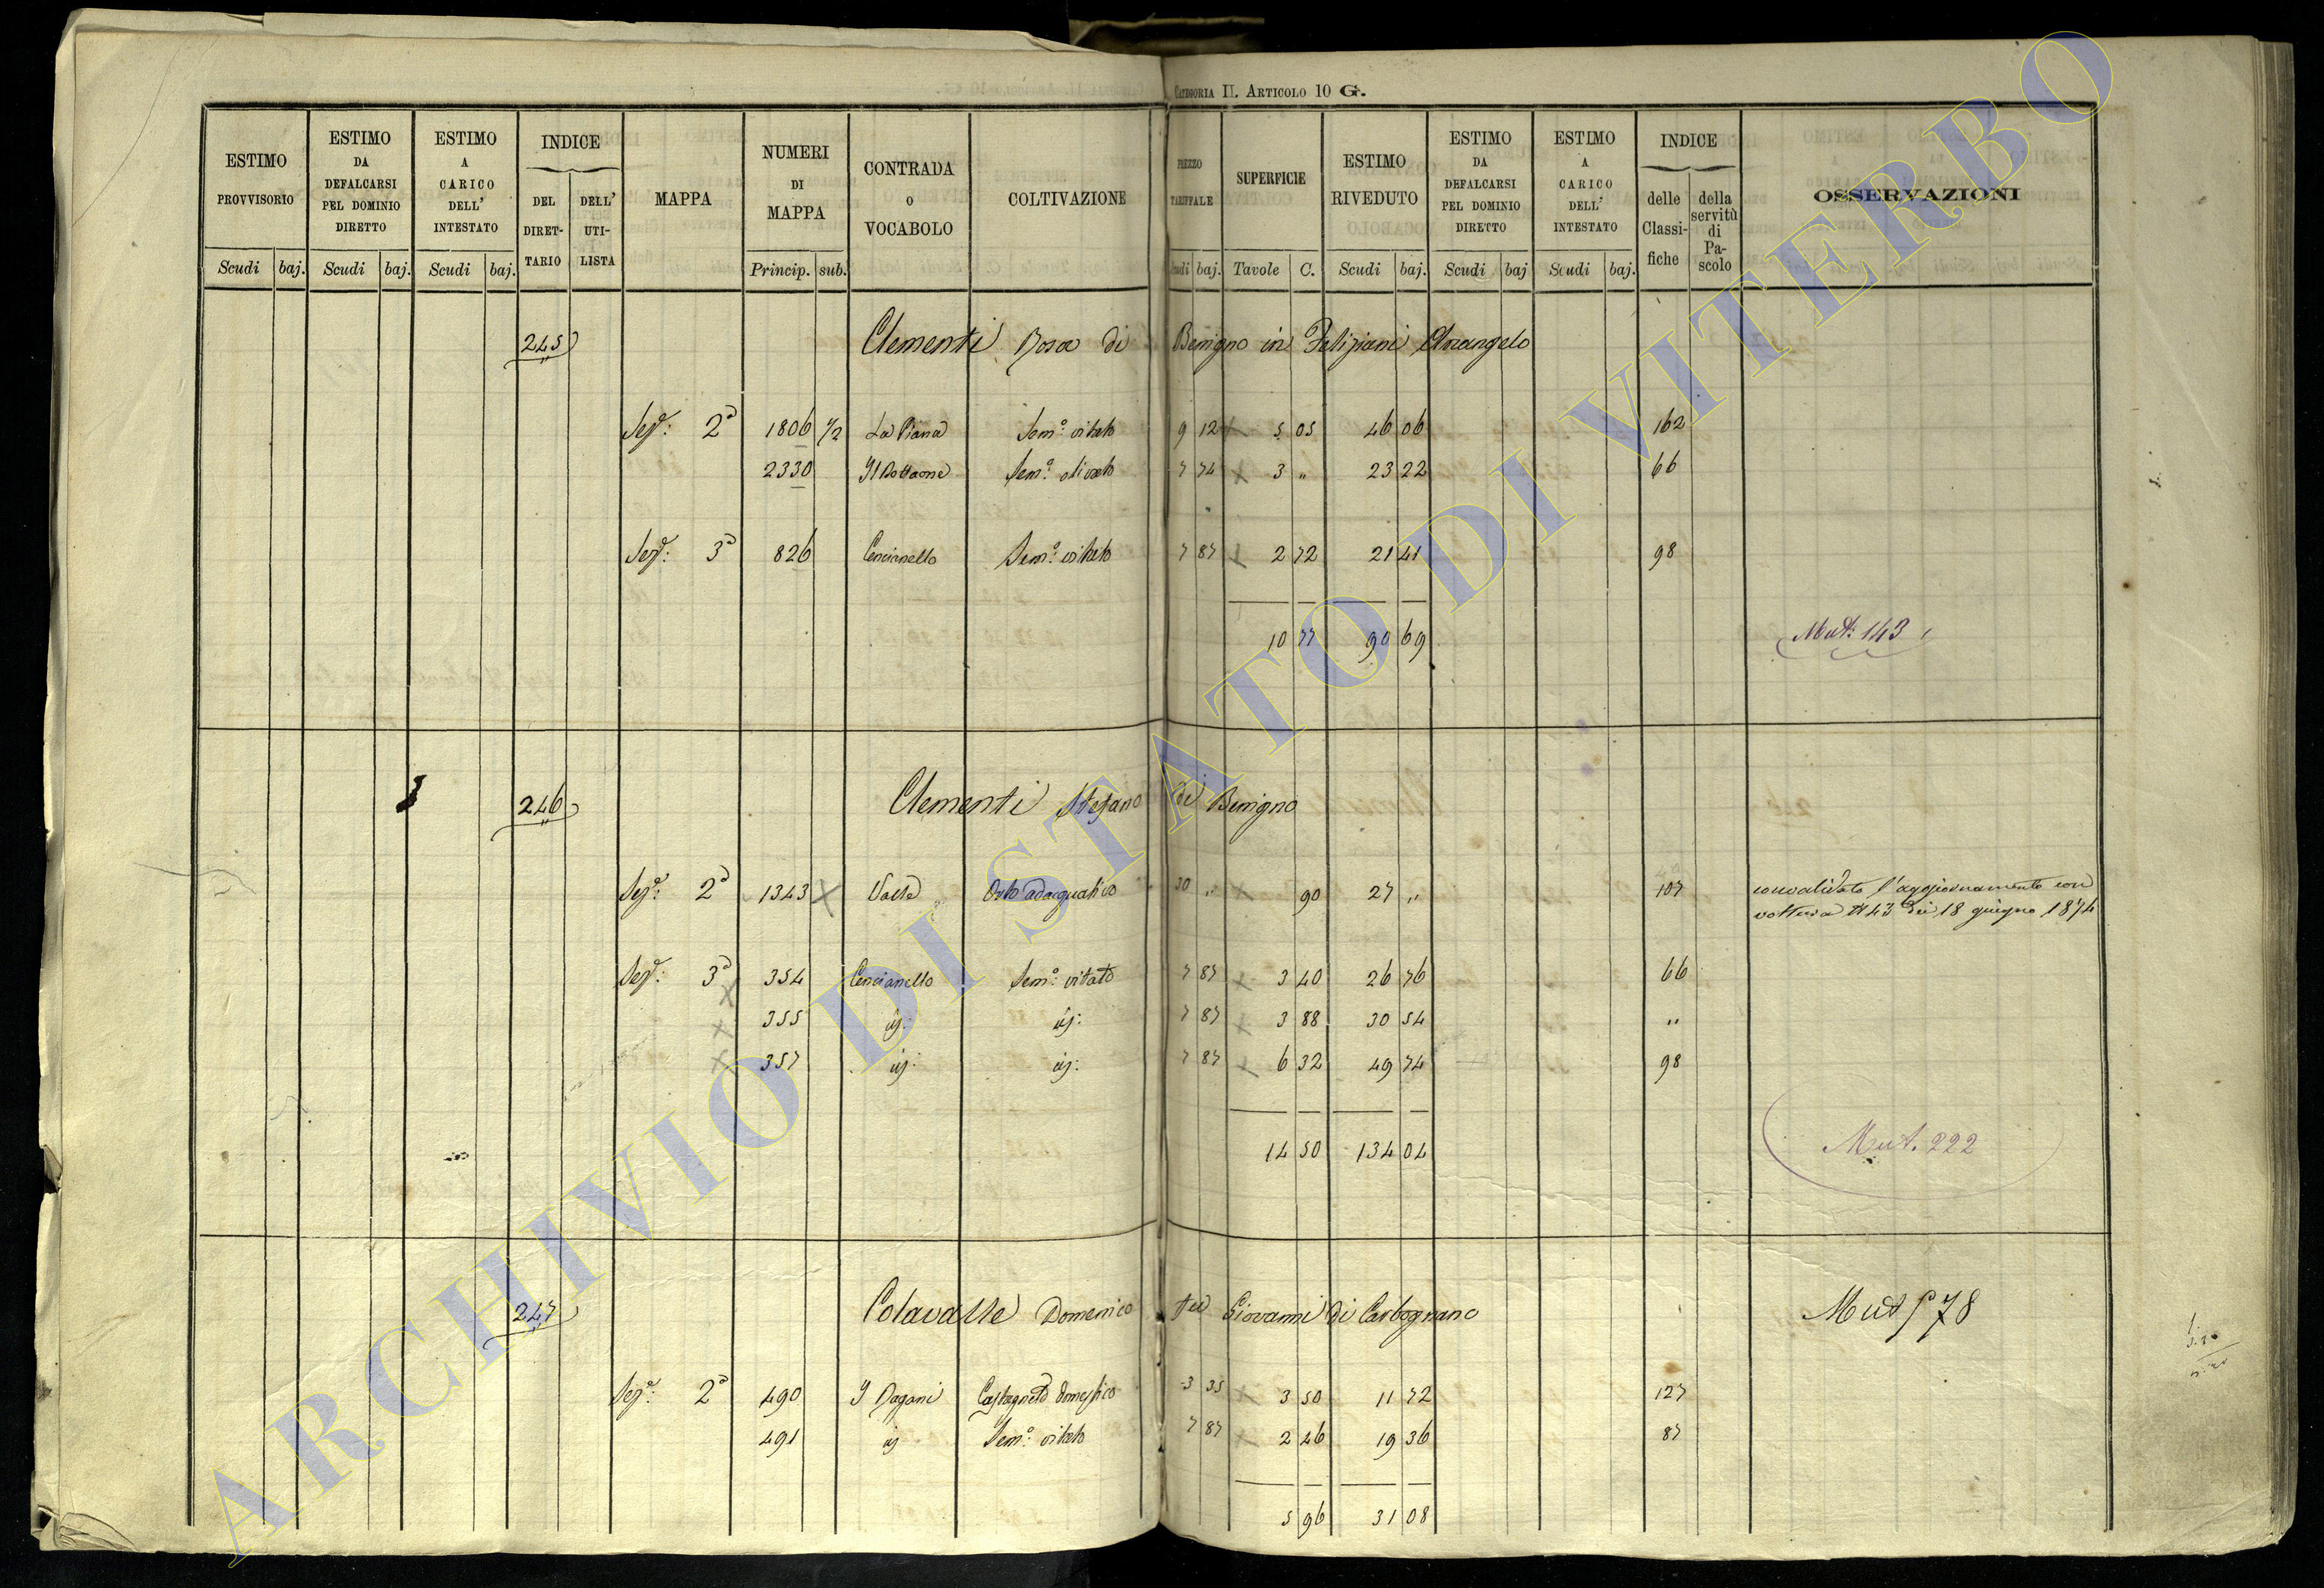 CATEGORIA II. ARTICOLO 10 G.
ESTIMO PROVVISORIO
ESTIMO DA DEFALCARSI PEL DOMINIO DIRETTO
ESTIMO A CARICO DELL' INTESTATO
INDICE
DEL DIRET-TARIO
DELL' UTI-LISTA
MAPPA
NUMERI DI MAPPA
CONTRADA O VOCABOLO
COLTIVAZIONE
PREZZO TARIFFALE
SUPERFICIE
ESTIMO RIVEDUTO
ESTIMO DA DEFALCARSI PEL DOMINIO DIRETTO
ESTIMO A CARICO DELL' INTESTATO
INDICE
delle Classi-fiche
della servitù di Pa-scolo
OSSERVAZIONI
Scudi baj. Scudi baj. Scudi baj. Princip. sub. Scudi baj. Tavole C. Scudi baj. Scudi baj Scudi baj.
245 Clementi Rosa di Benigno in Feliziani Arcangelo
Sez.e: 2a 1806 1/2 La Piana Sem.o vitato 9 12 5 05 46 06 162
2330 Il Bottaone Sem.o olivato 7 74 3 " 23 22 66
Sez.e: 3a 826 Cencianello Sem.o vitato 7 87 2 72 21 41 98
10 77 90 69
Mut: 143
246 Clementi Stefano di Benigno
Sez.e: 2a 1343 Valle Orto adacquativo 30 " 90 27 " 107 convalidato l'aggiornamento con
voltura N 43 dei 18 giugno 1874
Sez.e: 3a 354 Cencianello Sem.o vitato 7 87 3 40 26 76 66
355 id: id: 7 87 3 88 30 54 "
357 id: id: 7 87 6 32 49 74 98
14 50 134 04
Mut. 222
247 Colavalle Domenico fu Giovanni di Carbognano Mut 578
Sez.e: 2a 490 I Pagani Castagneto domestico 3 35 3 50 11 72 127
491 id Sem.o vitato 7 87 2 46 19 36 87
5 96 31 08
ARCHIVIO DI STATO DI VITERBO